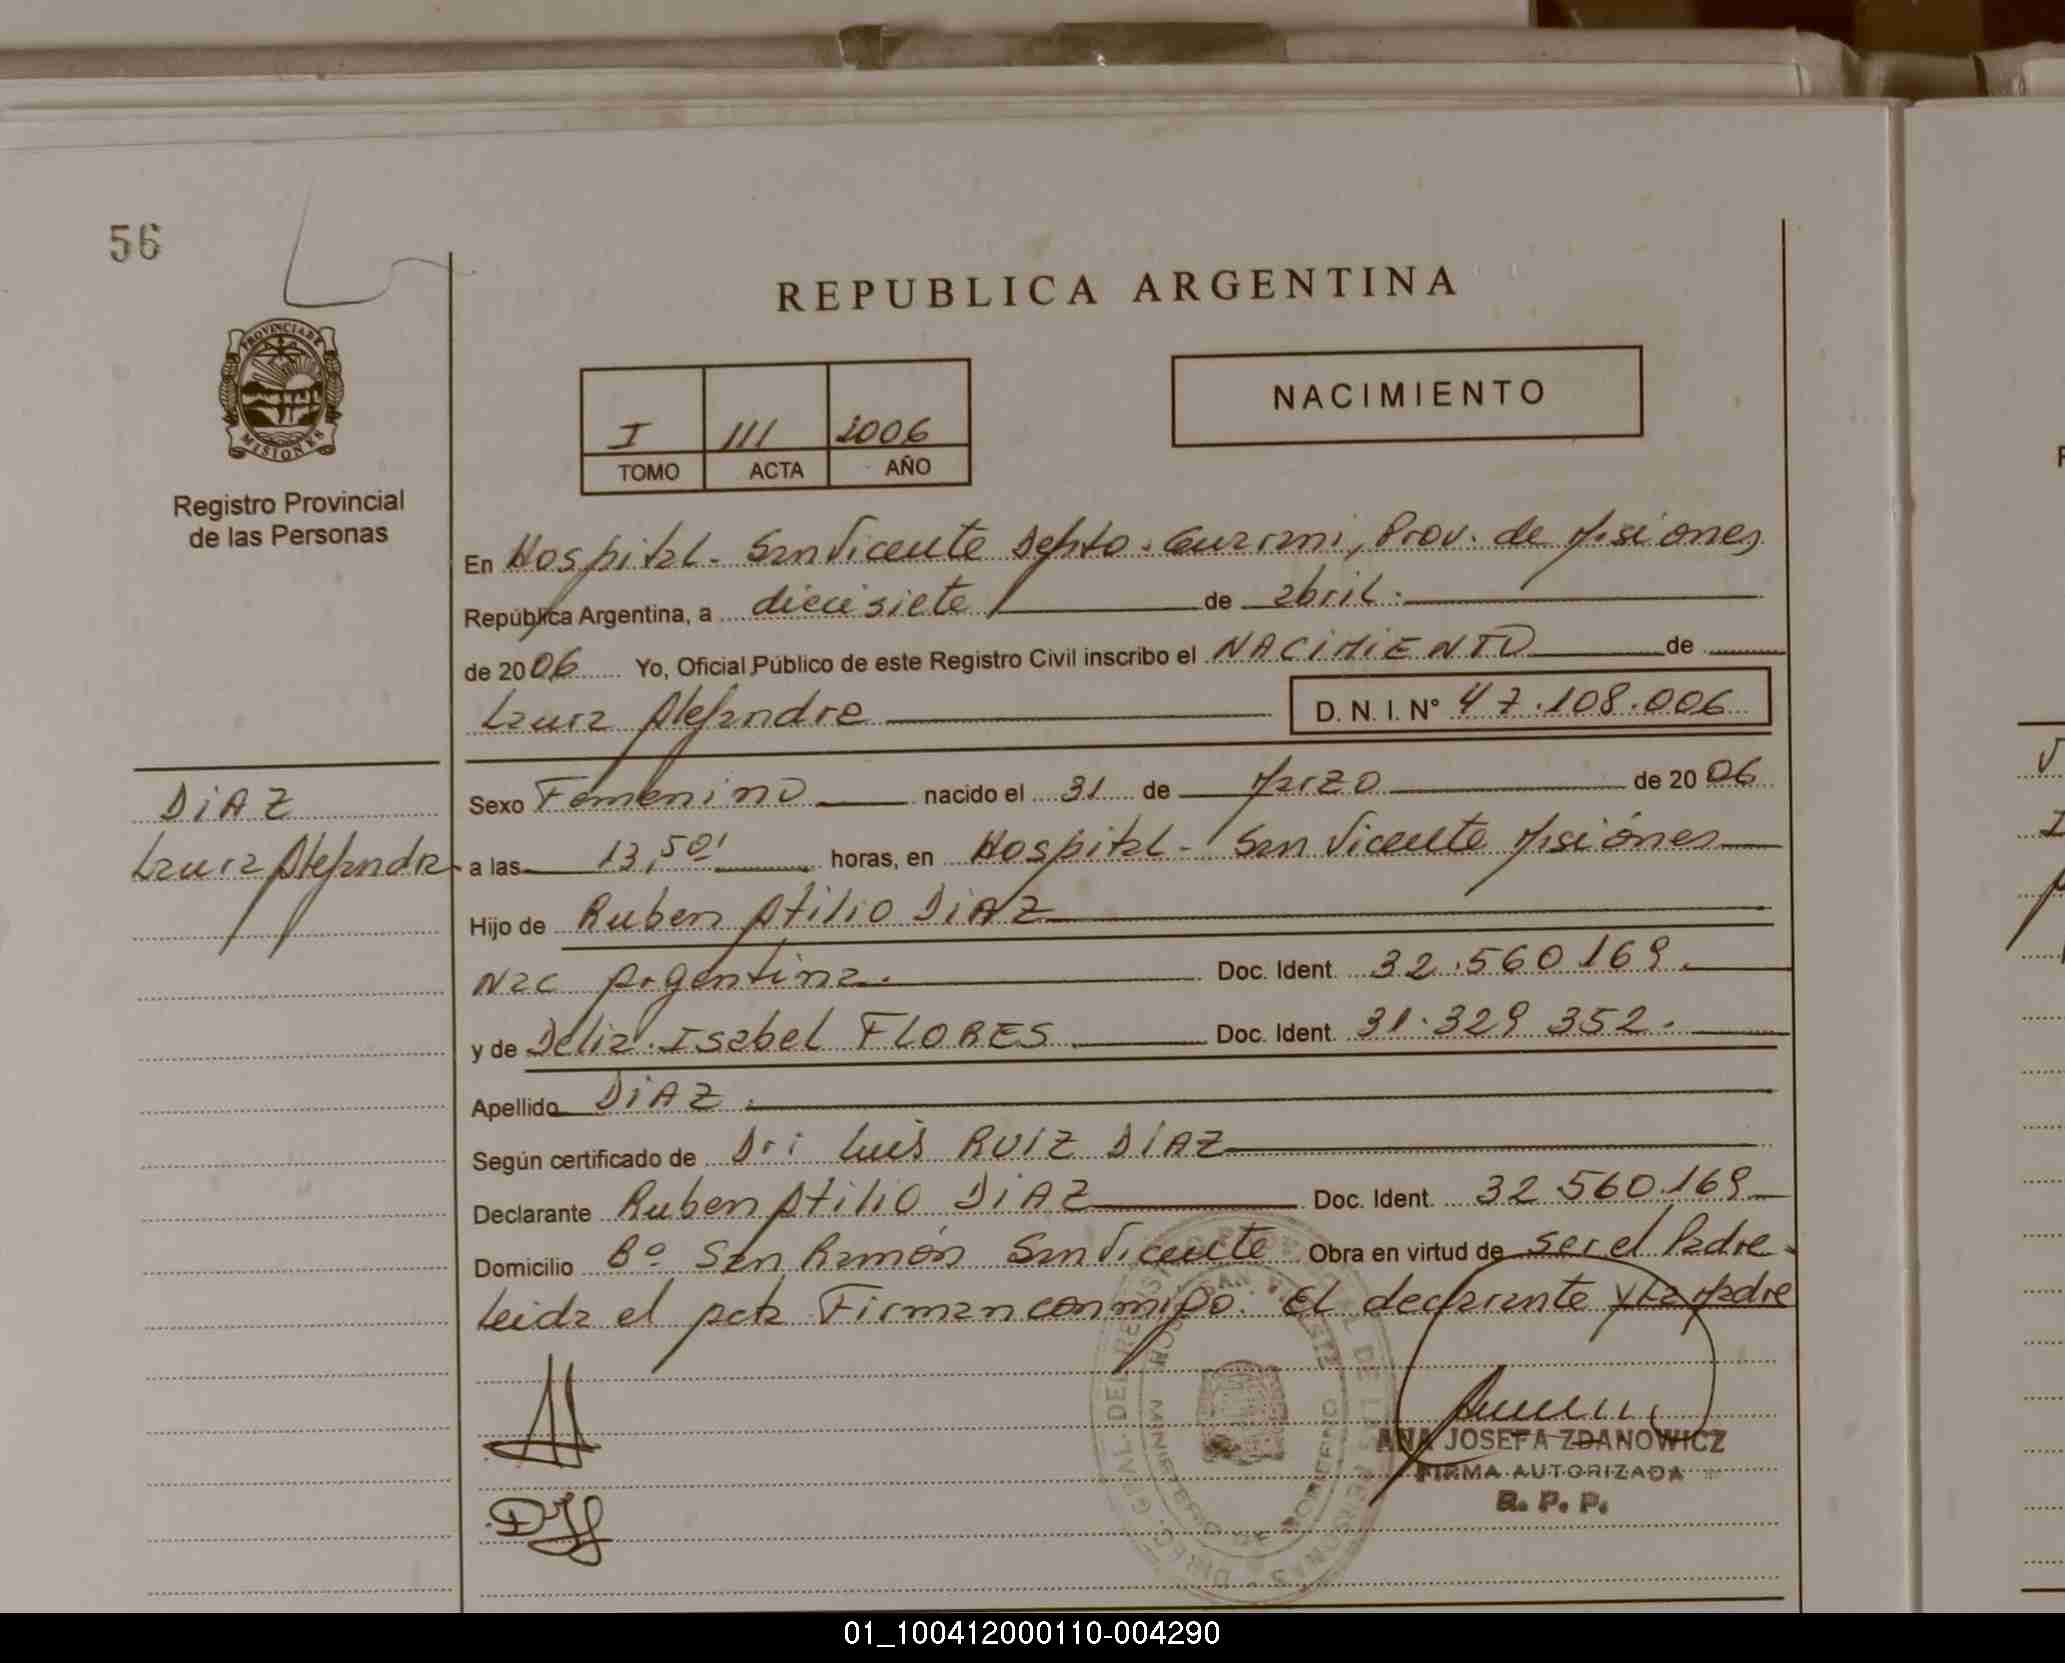 56
REPUBLICA ARGENTINA
PROVINCIA DE
MISIONES
Registro Provincial
de las Personas
I 111 2006
TOMO ACTA AÑO
NACIMIENTO
En Hospital - San Vicente Depto. Guarani, Prov. de Misiones
República Argentina, a diecisiete de abril.
de 2006 Yo, Oficial Público de este Registro Civil inscribo el NACIMIENTO de
Laura Alejandra D. N. I. N° 47.108.006
Sexo Femenino nacido el 31 de Marzo de 2006
DIAZ
Laura Alejandra
a las 13,50' horas, en Hospital - San Vicente Misiónes
Hijo de Ruben Atilio DIAZ
Nac Argentina. Doc. Ident. 32.560.169.
y de Delia Isabel FLORES Doc. Ident. 31.329 352.
Apellido DIAZ.
Según certificado de Dr: Luis RUIZ DIAZ
Declarante Ruben Atilio DIAZ Doc. Ident. 32.560.169
Domicilio B° San Ramón San Vicente Obra en virtud de ser el Padre.
Leida el acta Firman conmigo. El declarante y la Madre
ANA JOSEFA ZDANOWICZ
FIRMA AUTORIZADA
R. P. P.
01_100412000110-004290